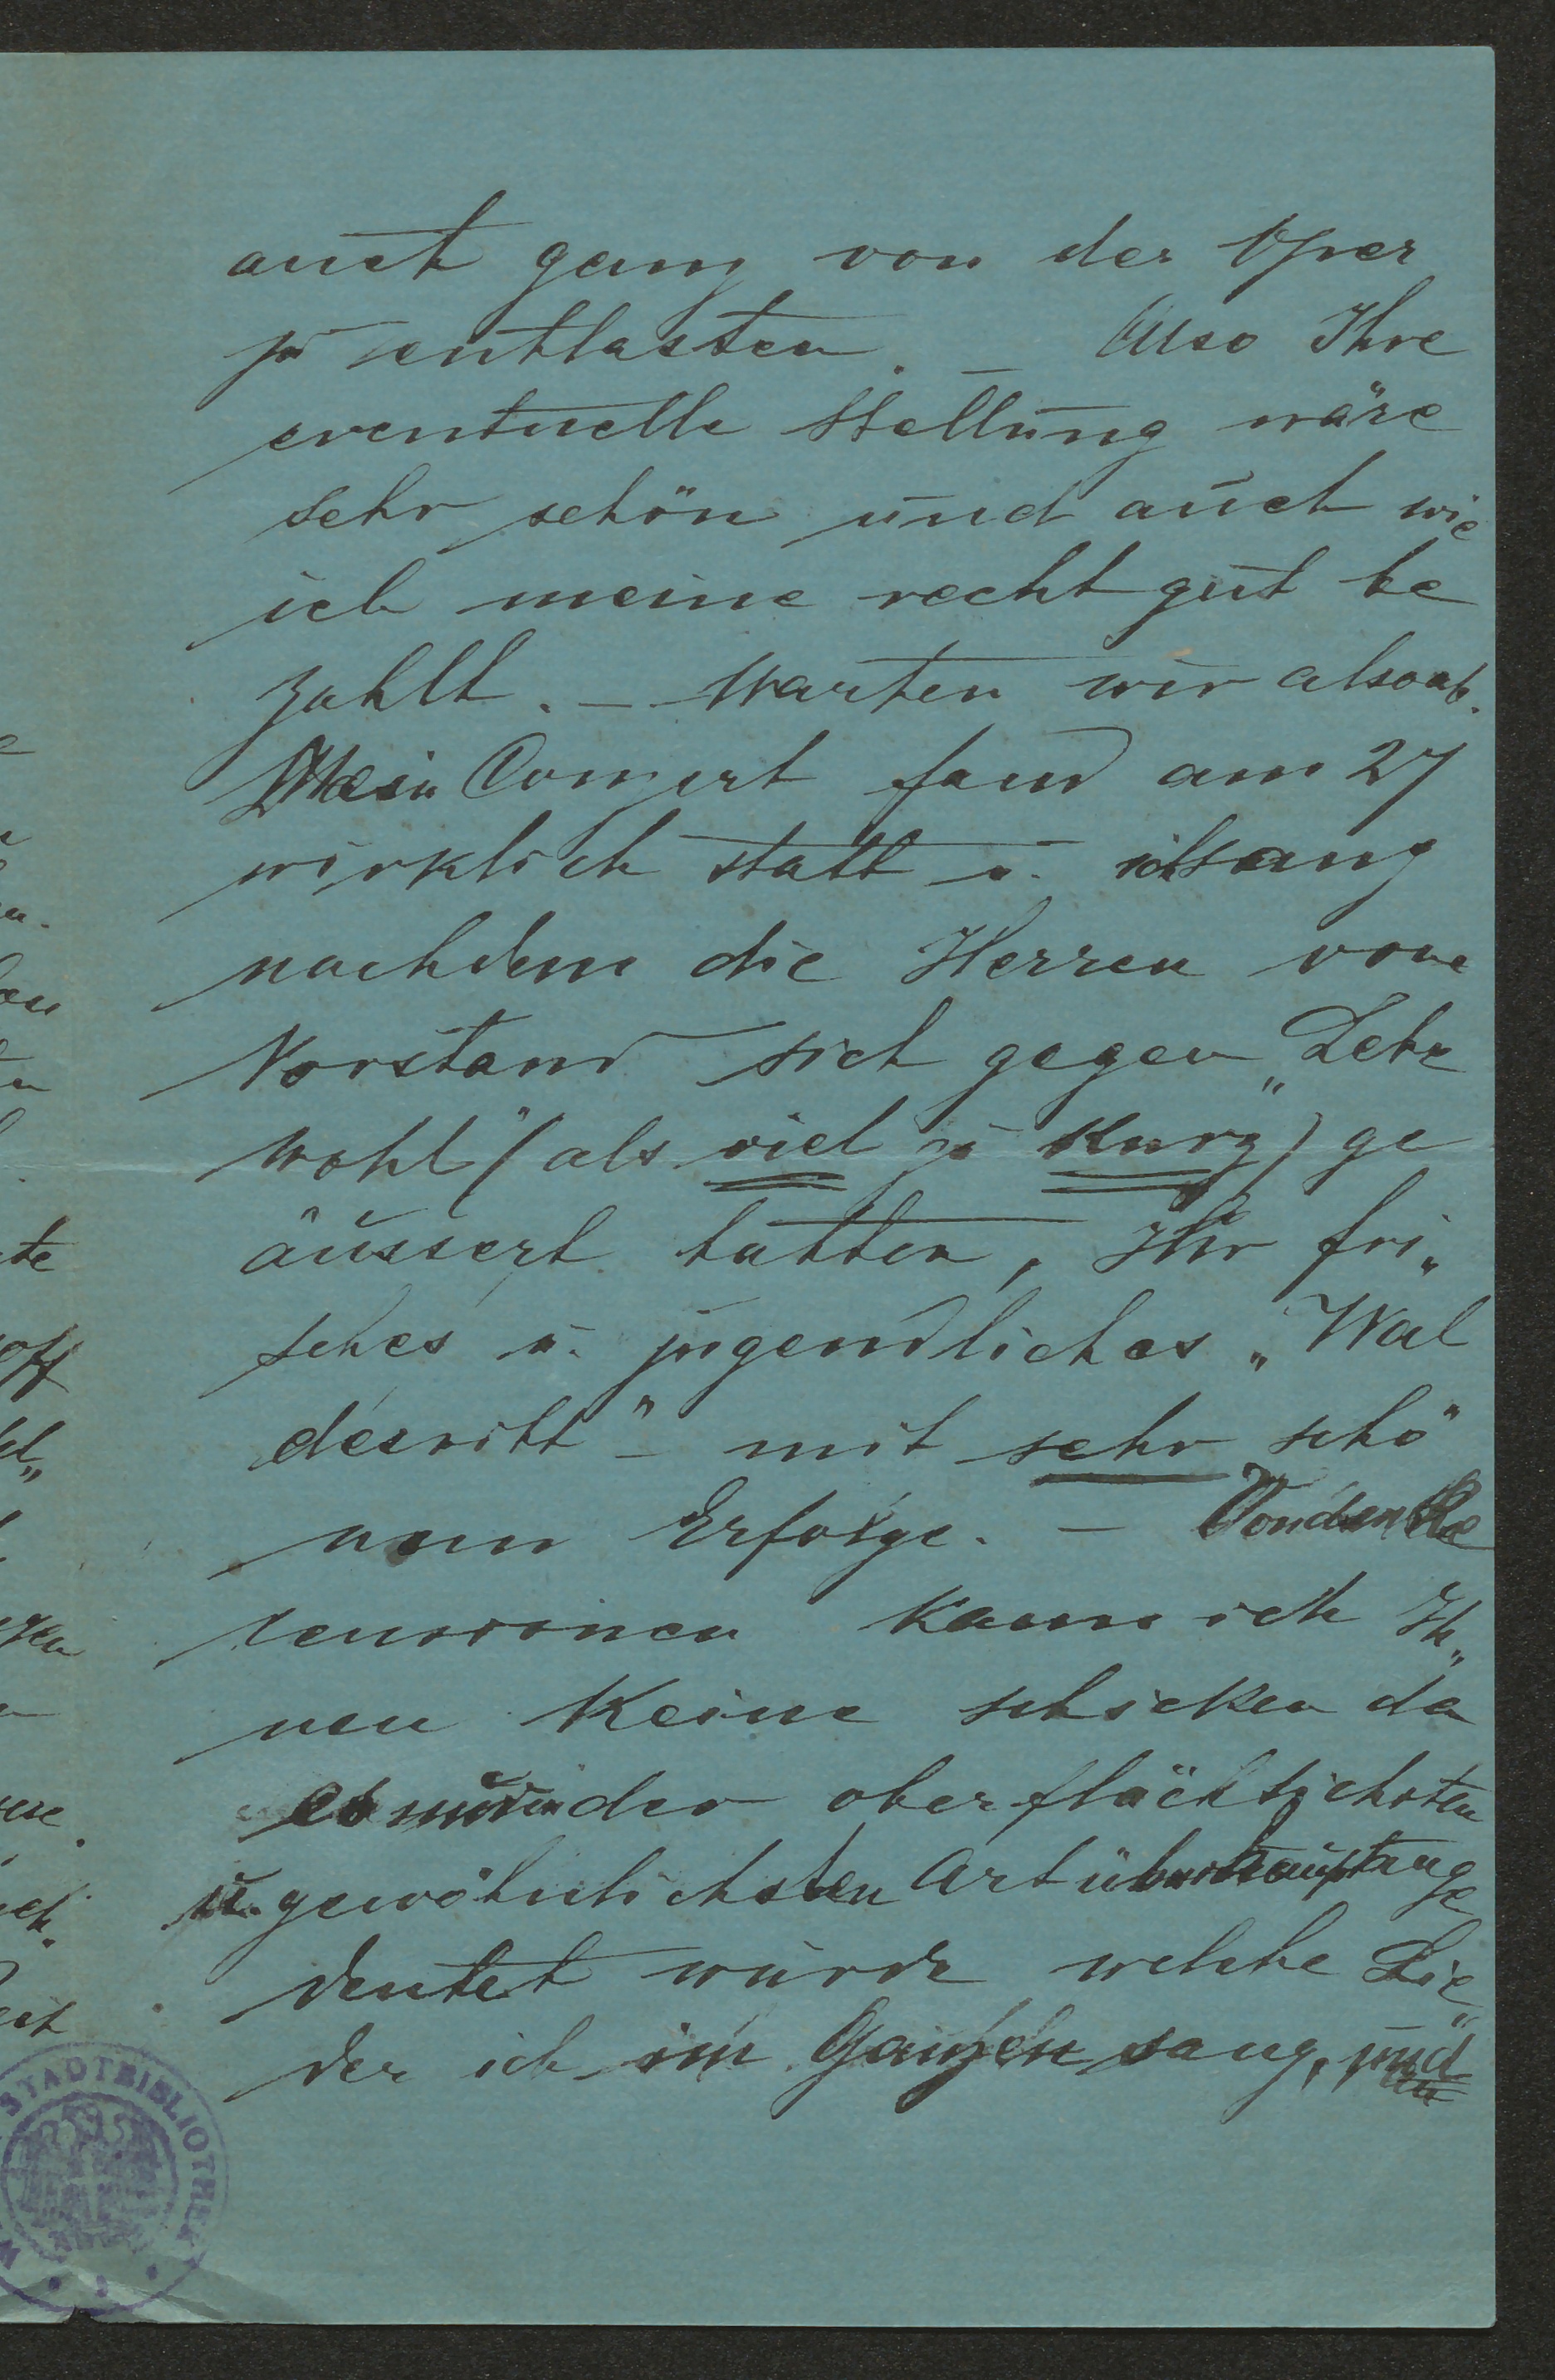 auch ganz von der Oper
zu entlasten. – Also Ihre
eventuelle Stellung wäre
sehr schön und auch wie
ich meine recht gut be
zahlt. – Warten wir also ab.
Mein Conzert fand am 27
wirklich statt u. ich sang
nachdem die Herren vom
Vorstand sich gegen „Lebe
wohl" (als viel zu kurz) ge
äussert hatten, Ihr fri„
sches u. jugendliches „Wal
desritt" – mit sehr schö"
nem Erfolge. – Von den Re
censionen kann ich Ih„
nen keine schicken da
es nur in der oberflächlichsten
u. gewöhnlichsten Art überhaupt ange
deutet wurde welche Lie„
der ich im Ganzen sang, und
STADTBIBLIOTHEK